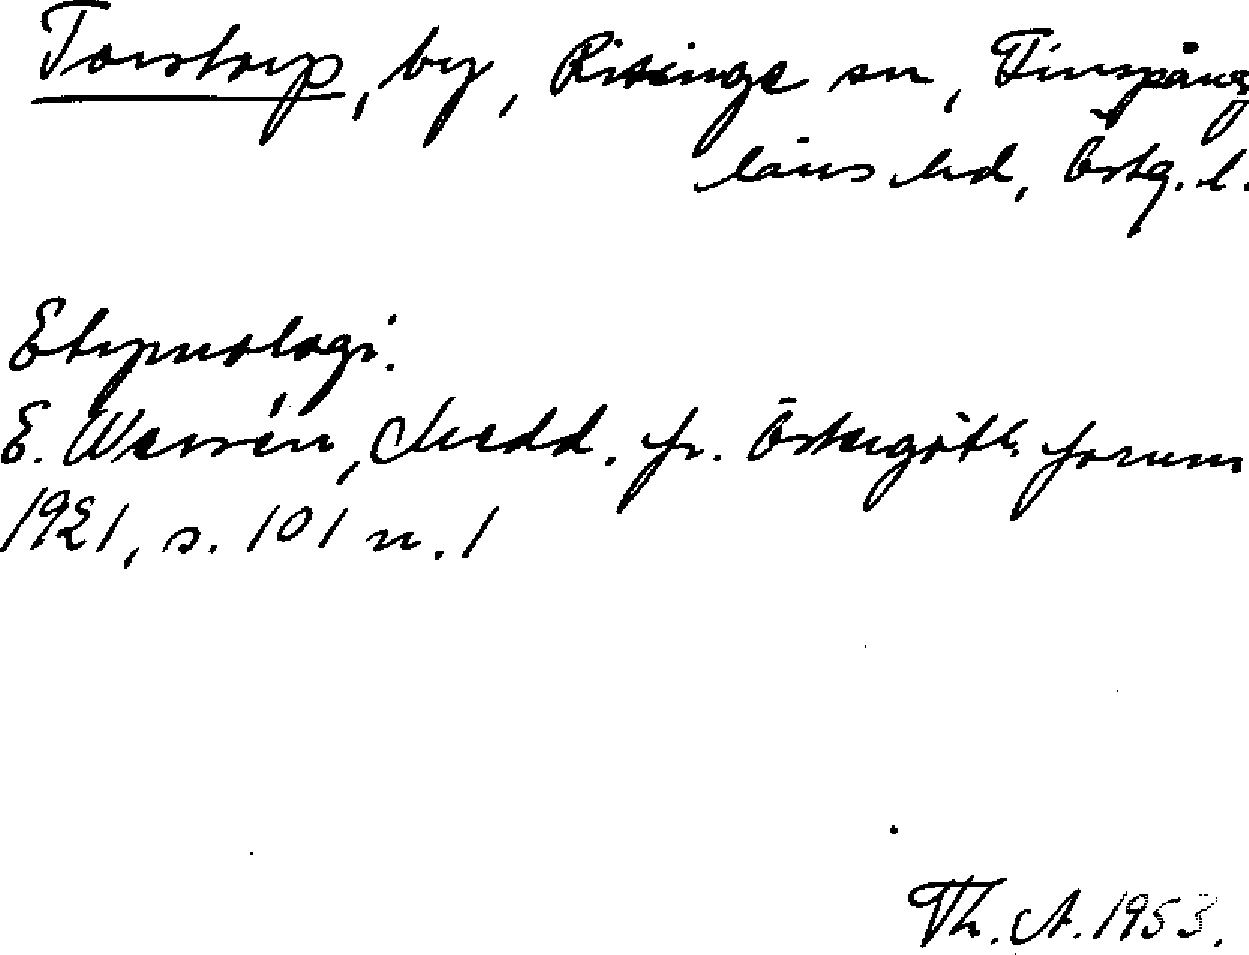 Torstorp, by, Risinge sn, Finspång
läns hd, Östg. l.
Etymologi.
E. Wessén, Medd. fr. Östergötl. fornm
1921, s. 101 n. 1
Th. A. 1953.